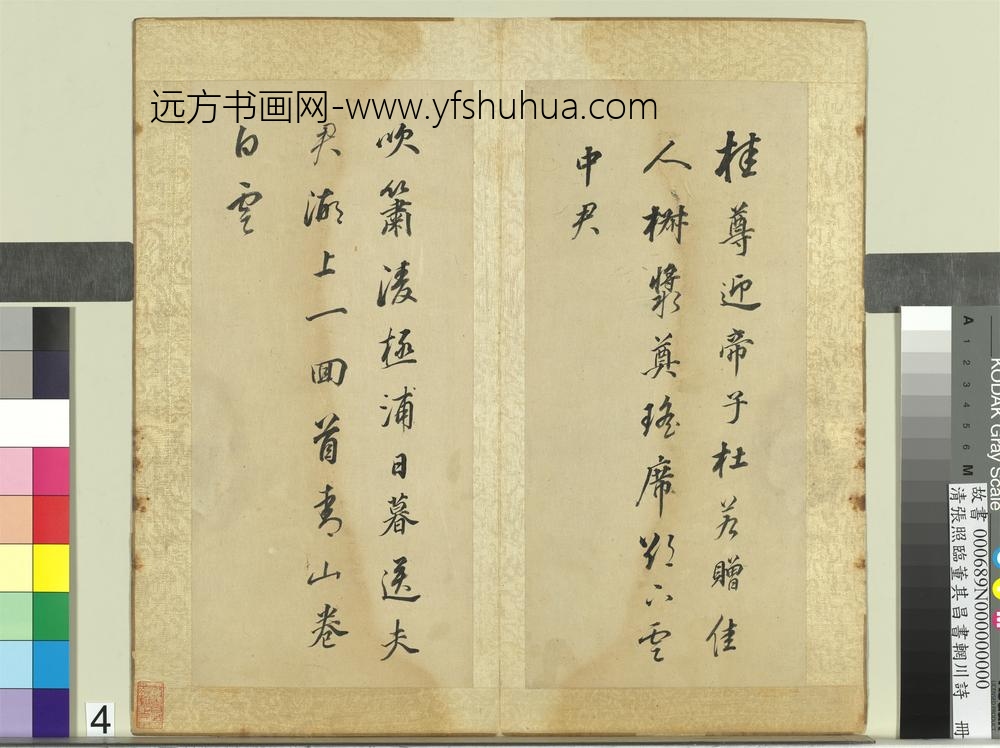 远方书画网-www.yfshuhua.com
桂尊迎帝子杜若贈佳
人椒漿奠瑤席欲下雲
中君
吹簫淩極浦日暮送夫
君湖上一回首青山卷
白雲
4
KODAK Gray Scale
A 1 2 3 4 5 6 M
故書 000689N000000000
清張照臨董其昌書輞川詩 冊